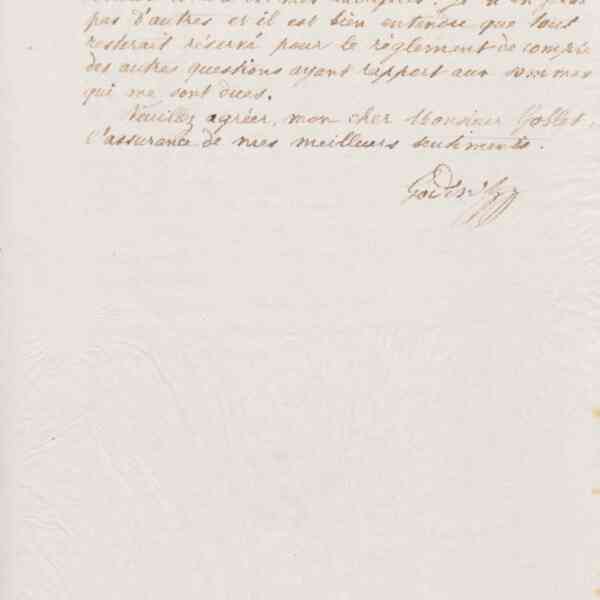 pas d'autres et il est bien entendu que tout
resterait réservé pour le règlement de compte
des autres questions ayant rapport aux sommes
qui me sont dues.
Veuillez agréer, mon cher Monsieur Gollet,
l'assurance de mes meilleurs sentiments.